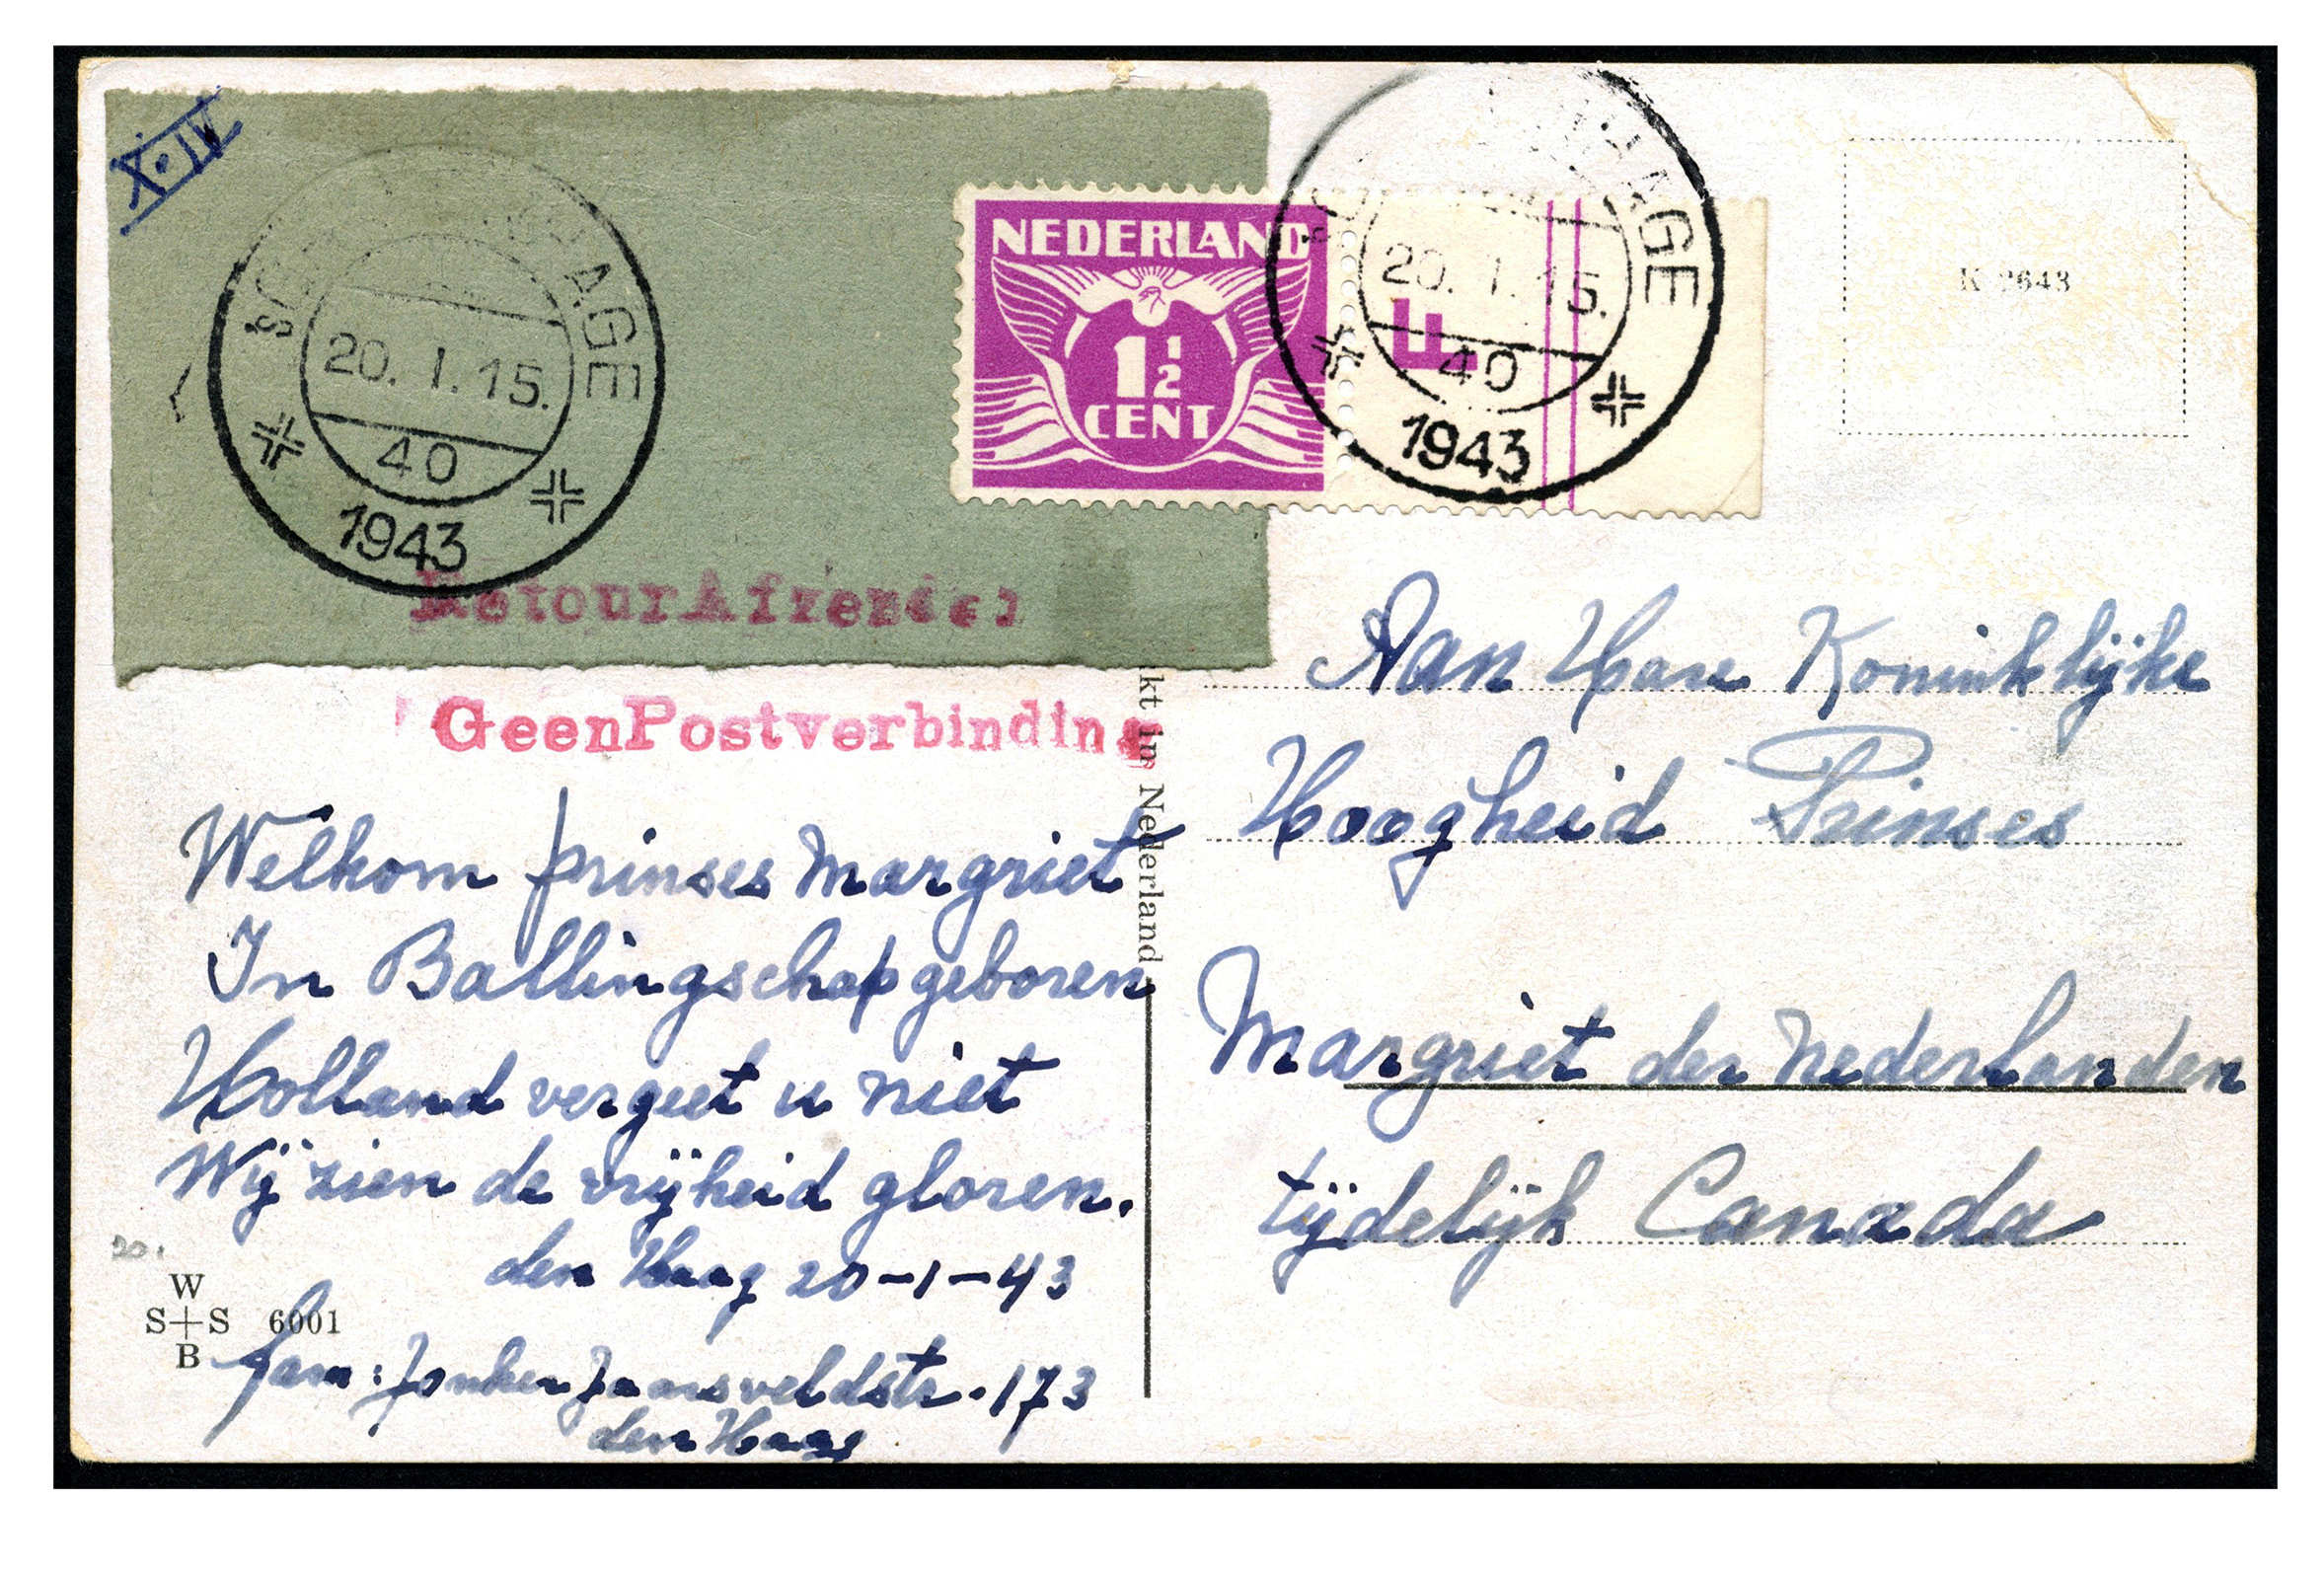 X·IV
'SGRAVENHAGE
20. 1. 15.
40
1943
NEDERLAND
1 1/2
CENT
F
HAGE
20. 1. 15.
40
1943
K 2643
Retour Afzender
Geen Postverbinding
kt in Nederland
Welkom prinses Margriet
In Ballingschap geboren
Holland vergeet u niet
Wij zien de vrijheid gloren.
den Haag 20-1-43
20.
W
S+S 6001
B
fam: Jonker Jaarsveldstr. 173
den Haag
Aan Hare Koninklijke
Hoogheid Prinses
Margriet der Nederlanden
tijdelijk Canada